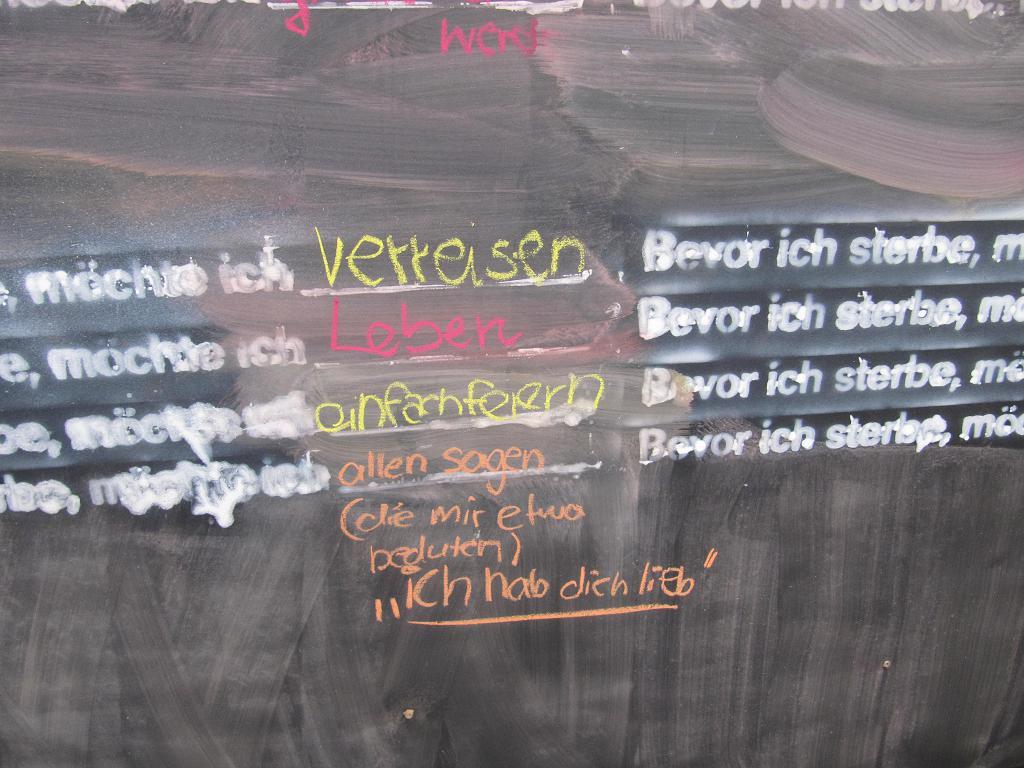 Bevor ich sterbe,
werd
, möchte ich Verreisen Bevor ich sterbe, m
e, möchte ich Leben Bevor ich sterbe, mö
be, möchte ich einfachfeiern Bevor ich sterbe, mö
rbe, möchte ich allen sagen Bevor ich sterbe, möc
(die mir etwa
beduten)
„Ich hab dich lieb"